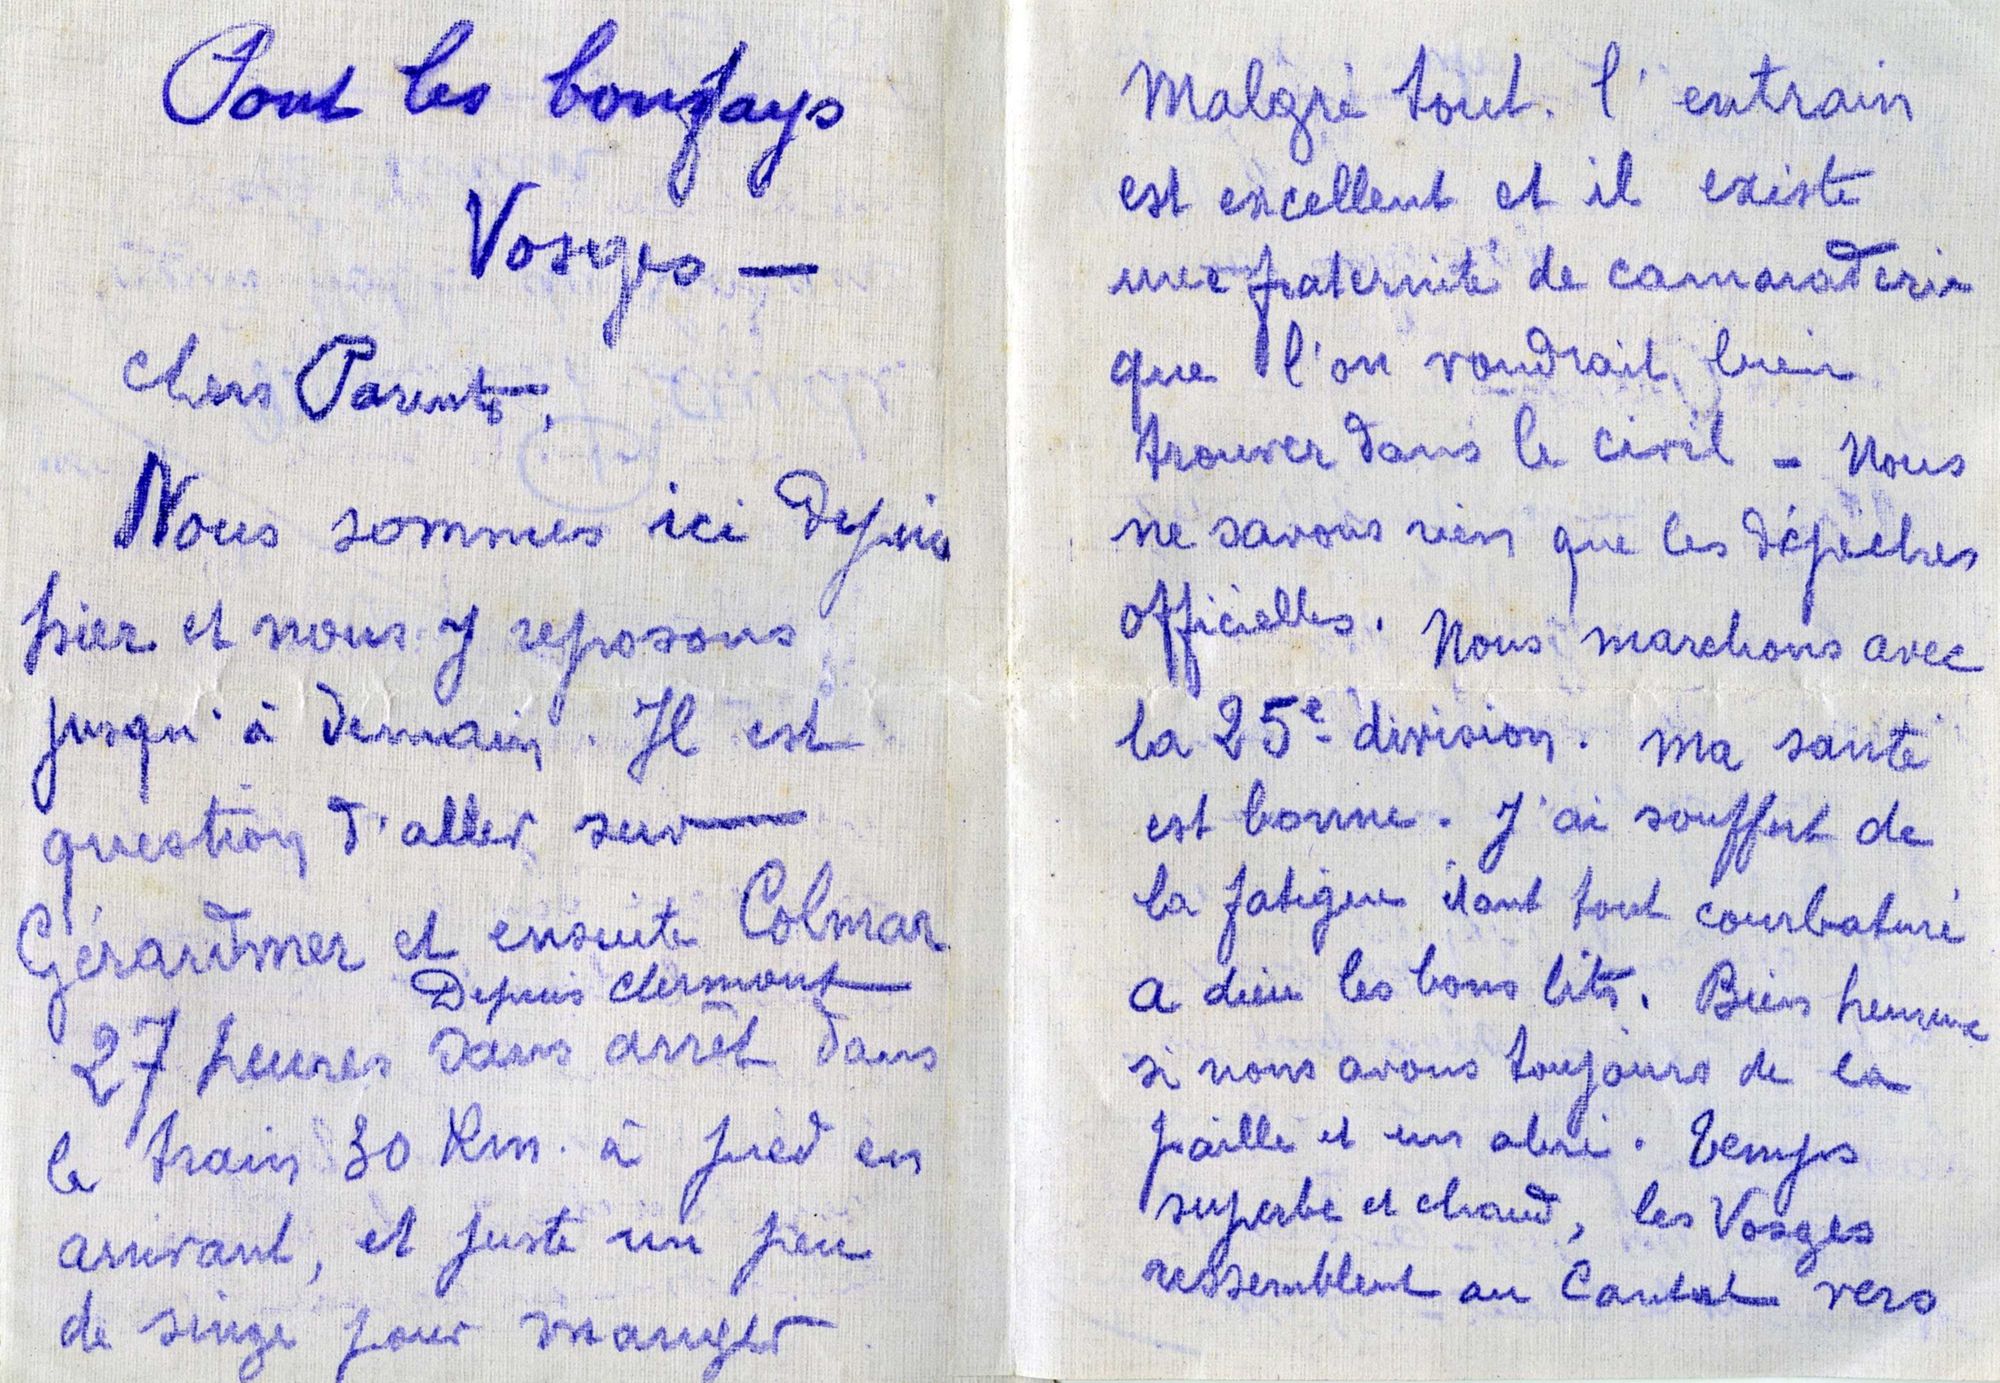 Pont les bonfays
Vosges —
Chers Parents,
Nous sommes ici depuis
hier et nous y reposons
jusqu'à demain. Il est
question d'aller sur
Gérardmer et ensuite Colmar
Depuis Clermont
27 heures sans arrêt dans
le train 30 Km. à pied en
arrivant, et juste un peu
de singe pour manger
Malgré tout. l'entrain
est excellent et il existe
une fraternité de camaraderie
que l'on voudrait bien
trouver dans le civil - Nous
ne savons rien que les dépêches
officielles. Nous marchons avec
la 25e division. Ma santé
est bonne. J'ai souffert de
la fatigue étant tout courbaturé
a dieu les bons lits. Bien heureux
si nous avons toujours de la
paille et un abri. Temps
superbe et chaud, les Vosges
ressemblent au Cantal vers